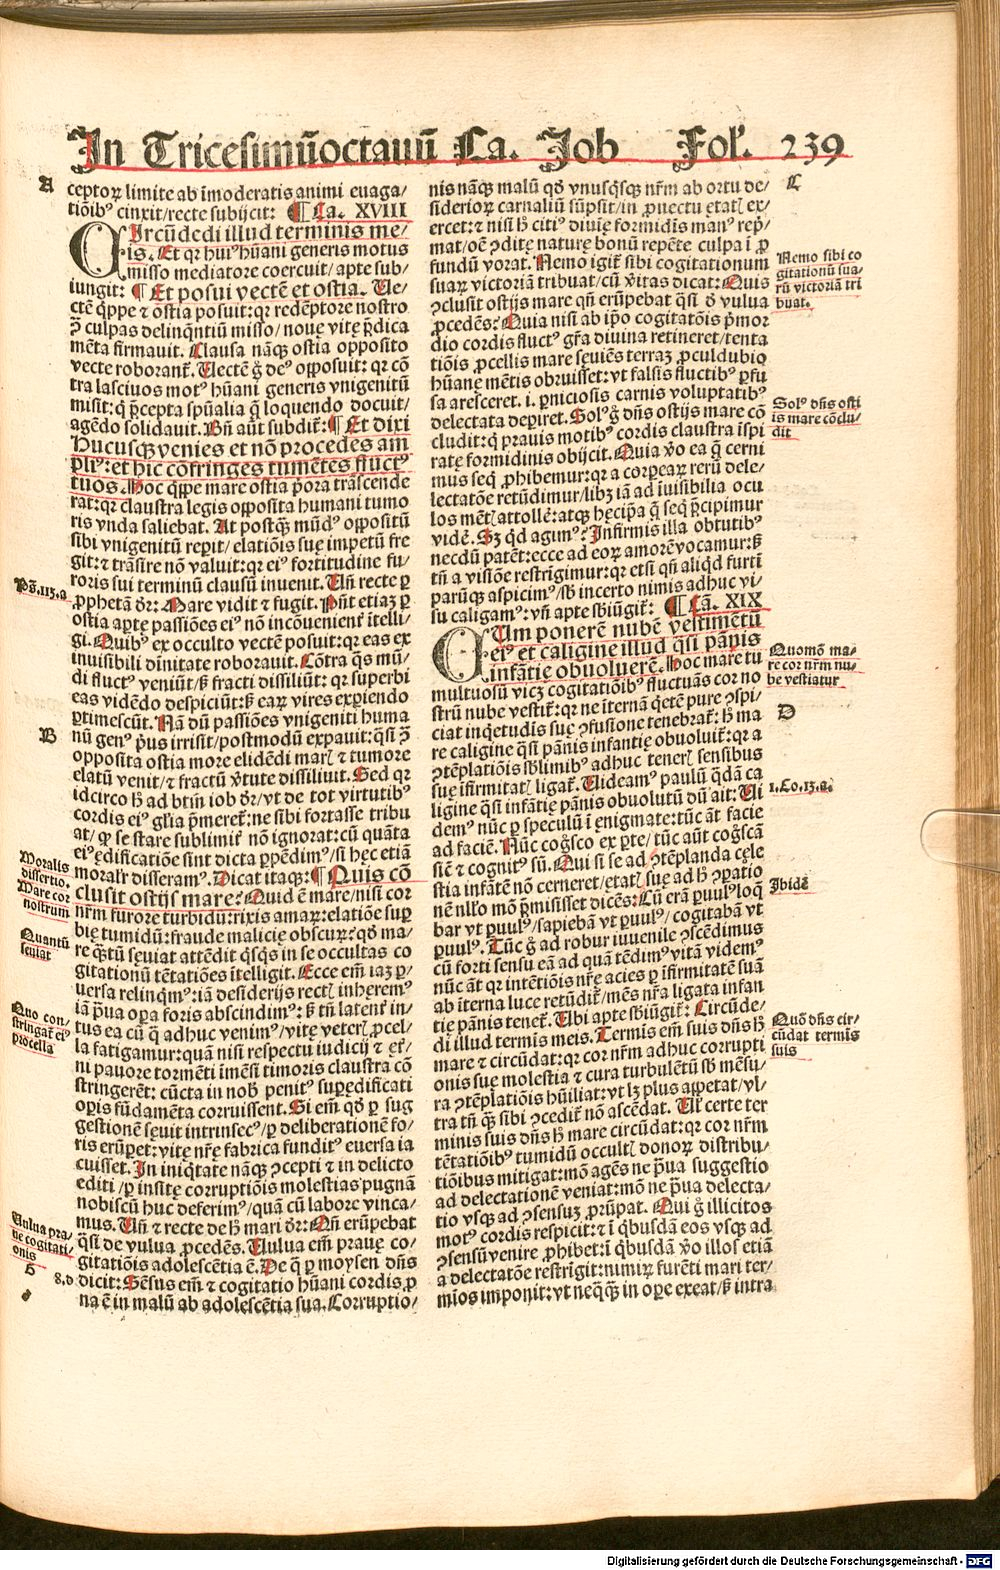 In Tricesimūoctauū Ca. Job Fol'. 239
A
ceptoꝝ limite ab īmoderatis animi euaga/
tiōibꝰ cinxit/recte subijcit: ¶ Ca. XVIII
CIrcūdedi illud terminis me/
is. Et qꝛ huiꝰ hūani generis motus
misso mediatore coercuit/apte sub/
iungit: ¶ Et posui vectē et ostia. Ue/
ctē q̄ppe ⁊ ōstia posuit: qꝛ redēptore nostro
ↄ̄ culpas delinqntiū misso/noue vitę p̄dica
mēta firmauit. Clausa nāqꝫ ostia opposito
vecte roborant̄. Uectē g̊ deꝰ opposuit: qꝛ cō
tra lasciuos motꝰ hūani generis vnigenitū
misit: q̄ p̄cepta spūalia q̄ loquendo docuit/
agēdo solidauit. Bn̄ aūt subdit̄: ¶ Et dixi
Hucusqꝫ venies et nō procedes am
pliꝰ: et hic cōfringes tumētes fluctꝰ
tuos. Hoc q̄ppe mare ostia p̄ora trāscende
rat: qꝛ claustra legis opposita humani tumo
ris vnda saliebat. At postqꝫ mūdꝰ oppositū
sibi vnigenitū reperit/elatiōis suę impetū fre
git: ⁊ trāsire nō valuit: qꝛ eiꝰ fortitudine fu/
roris sui terminū clausū inuenit. Un̄ recte ꝑ
ꝓphetā dr̄: Mare vidit ⁊ fugit. Pn̄t etiaꝫ ꝑ
ostia aperte passiōes eiꝰ nō incōuenient̄ itelli/
gi. Quibꝰ ex occulto vectē posuit: qꝛ eas ex
inuisibili diuinitate roborauit. Cōtra q̄s mū/
di fluctꝰ veniūt/ sꝫ fracti dissiliūt: qꝛ superbi
eas vidēdo despiciūt: sꝫ eaꝝ vires experiendo
ꝑtimescūt. Nā dū passiōes vnigeniti huma
nū genꝰ pͥus irrisit/postmodū expauit: q̄si ↄ̄
opposita ostia more elidēdi marꝭ ⁊ tumore
elatū venit/⁊ fractū v̄tute dissiliuit. Sed qꝛ
idcirco hͦ ad btm̄ iob dr̄/vt de tot virtutibꝰ
cordis eiꝰ gl̄ia p̄meret̄: ne sibi fortasse tribu
at/ꝙ se stare sublimit̄ nō ignorat: cū quāta
eiꝰ ędificatiōe sint dicta ꝑpēdimꝰ/si hęc etiā
moralr̄ disseramꝰ. Dicat itaqꝫ: ¶ Quis cō
clusit ostijs mare? Quid ē mare/nisi cor
nr̄m furore turbidū: rixis amaꝝ: elatiōe suꝑ
bię tumidū: fraude malicię obscuꝝ? qd̄ ma/
re q̄tū seuiat attēdit q̄sqs in se occultas co
gitationū tētatiōes ītelligit. Ecce em̄ iaꝫ ꝑ/
uersa relinqmꝰ: iā desiderijs rectꝭ inheremꝰ
iā praua oꝑa foris abscindimꝰ: sꝫ tn̄ latent̄ in/
tus ea cū q̄ adhuc venimꝰ/vitę veterꝭ ꝓcel/
la fatigamur: quā nisi respectu iudicij ⁊ ęt̄/
ni pauore tormēti īmēsi timoris claustra cō
stringerēt: cūcta in nobꝭ penitꝰ suꝑędificati
oꝑis fūdamēta corruissent. Si em̄ qd̄ ꝑ sug
gestionē sęuit intrinsecꝰ/ꝑ deliberationē fo/
ris erūpet: vitę nr̄ę fabrica funditꝰ euersa ia
cuisset. In iniqtate nāqꝫ ↄcepti ⁊ in delicto
editi/ꝑ insitę corruptiōis molestias pugnā
nobiscū huc deferimꝰ/quā cū labore vinca/
mus. Un̄ ⁊ recte de hͦ mari dr̄: Qn̄ erūpebat
q̄si de vulua ꝓcedēs. Uulua em̄ prauę co/
gitatiōis adolescētia ē. De q̄ ꝑ moysen dn̄s
dicit: Sēsus em̄ ⁊ cogitatio hūani cordis ꝓ
na ē in malū ab adolescētia sua. Corruptio/
Ps̄.113.a
B
Moralis
dissertio.
Mare cor
nostrum
Quantū
seuiat
Quo con/
stringat̄ eiꝰ
procella
Uulua pra/
ue cogitati/
onis
8.d
nis nāqꝫ malū qd̄ vnusqsqꝫ nr̄m ab ortu de/
sideriorꝫ carnaliū sūpsit/in ꝓuectu ętatꝭ ex/
ercet: ⁊ nisi hͦ citiꝰ diuię formidis manꝰ rep̄/
mat/oē ↄditę naturę bonū repēte culpa ī ꝓ
fundū vorat. Nemo igit̄ sibi cogitationum
suaꝝ victoriā tribuat/cū v̄itas dicat: Quis
ↄclusit ostijs mare qn̄ erūpebat q̄si d̄ vulua
ꝓcedēs? Quia nisi ab ip̄o cogitatōis p̄mor
dio cordis fluctꝰ gr̄a diuina retineret/tenta
tiōis ꝓcellis mare seuiēs terraꝫ ꝓculdubio
hūanę mētis obruisset: vt falsis fluctibꝰ ꝑfu
sa aresceret. i. ꝑniciosis carnis voluptatibꝰ
delectata deꝑiret. Solꝰ g̊ dn̄s ostijs mare cō
cludit: q̄ prauis motibꝰ cordis claustra īspi
ratę formidinis obijcit. Quia v̄o ea q̄ cerni
mus seq̄ ꝓhibemur: qꝛ a corꝑeaꝝ rerū dele/
lectatōe retūdimur/libꝫ iā ad īuisibilia ocu
los mētꝭ attollē: atqꝫ hęc ipa q̄ seq̄ p̄cipimur
vidē. Sꝫ qd agimꝰ? Infirmis illa obtutibꝰ
necdū patēt: ecce ad eoꝝ amorē vocamur: sꝫ
tn̄ a visiōe restrīgimur: qꝛ etsi qn̄ aliqd furti
parūqꝫ aspicimꝰ/sb̄ incerto nimis adhuc vi/
su caligam̄: vn̄ apte sb̄iūgit̄: ¶ Ca. XIX
CUm ponerē nubē vestimētū
eiꝰ et caligine illud q̄si pānis
infātię obuoluerē. Hoc mare tu
multuosū vicꝫ cogitatiōibꝰ fluctuās cor no
strū nube vestit̄: qꝛ ne iternā q̄etē pure ↄspi/
ciat inq̄etudis suę ↄfusione tenebrat̄: hͦ ma
re caligine q̄si pānis infantię obuoluit̄: qꝛ a
ↄtēplatiōis sb̄limibꝰ adhuc tenerꝭ sensibus
suę īfirmitatꝭ ligat̄. Uideamꝰ paulū q̄dā ca
ligine q̄si infātię pānis obuolutū dū ait: Ui
demꝰ nūc ꝑ speculū ī enigmate: tūc āt facie
ad faciē. Nūc cog̊sco ex ꝑte/tūc aūt cog̊scā
sic̄ ⁊ cognitꝰ sū. Qui si se ad ↄtēplanda cęle
stia infātē nō cerneret/etatꝭ suę ad hͦ ↄꝑatio
nē nllo mō p̄misisset dicēs: Cū erā puulꝰ loq̄
bar vt puulꝰ/sapiebā vt puulꝰ/cogitabā vt
puulꝰ. Tūc g̊ ad robur iuuenile ↄscēdimus
cū forti sensu eā ad quā tēdimꝰ vitā videmꝰ
nūc āt qꝛ intētiōis nr̄ę acies ꝑ īfirmitatē suā
ab īterna luce retūdit̄/mēs nr̄a ligata infan
tię pānis tenet̄. Ubi apte sb̄iūgit̄: Circūde/
di illud termis meis. Termis em̄ suis dn̄s hͦ
mare ⁊ circūdat: qꝛ cor nr̄m adhuc corrupti
onis suę molestia ⁊ cura turbulētū sb̄ mēsu/
ra ↄtēplatiōis hūiliat: vt lꝫ plus appetat/vl/
tra tn̄ qꝫ sibi ↄcedit̄ nō ascēdat. Ul' certe ter
minis suis dn̄s hͦ mare circūdat: qꝛ cor nr̄m
tētatiōibꝰ tumidū occultꝭ donoꝝ distribu/
tiōibus mitigat: mō agēs ne p̄ua suggestio
ad delectationē veniat: mō ne p̄ua delecta/
tio vsqꝫ ad ↄsensuꝫ ꝓrūpat. Qui g̊ illicitos
motꝰ cordis respicit: ⁊ ī q̄busdā eos vsqꝫ ad
ↄsensū venire ꝓhibet: ī q̄busdā v̄o illos etiā
a delectatōe restrīgit: nimiꝝ furēti mari ter/
mīos imponit: vt neq̄qꝫ in oꝑe exeat/sꝫ intra
C
Nemo sibi co
gitationū sua/
rū victoriā tri
buat.
Solꝰ dn̄s osti
is mare cōclu/
dit
Quomō ma/
re cor nr̄m nu/
be vestiatur
D
1.Co.13.a.
Ibidē
Quō dn̄s cir/
cūdat termīs
suis
Digitalisierung gefördert durch die Deutsche Forschungsgemeinschaft - DFG